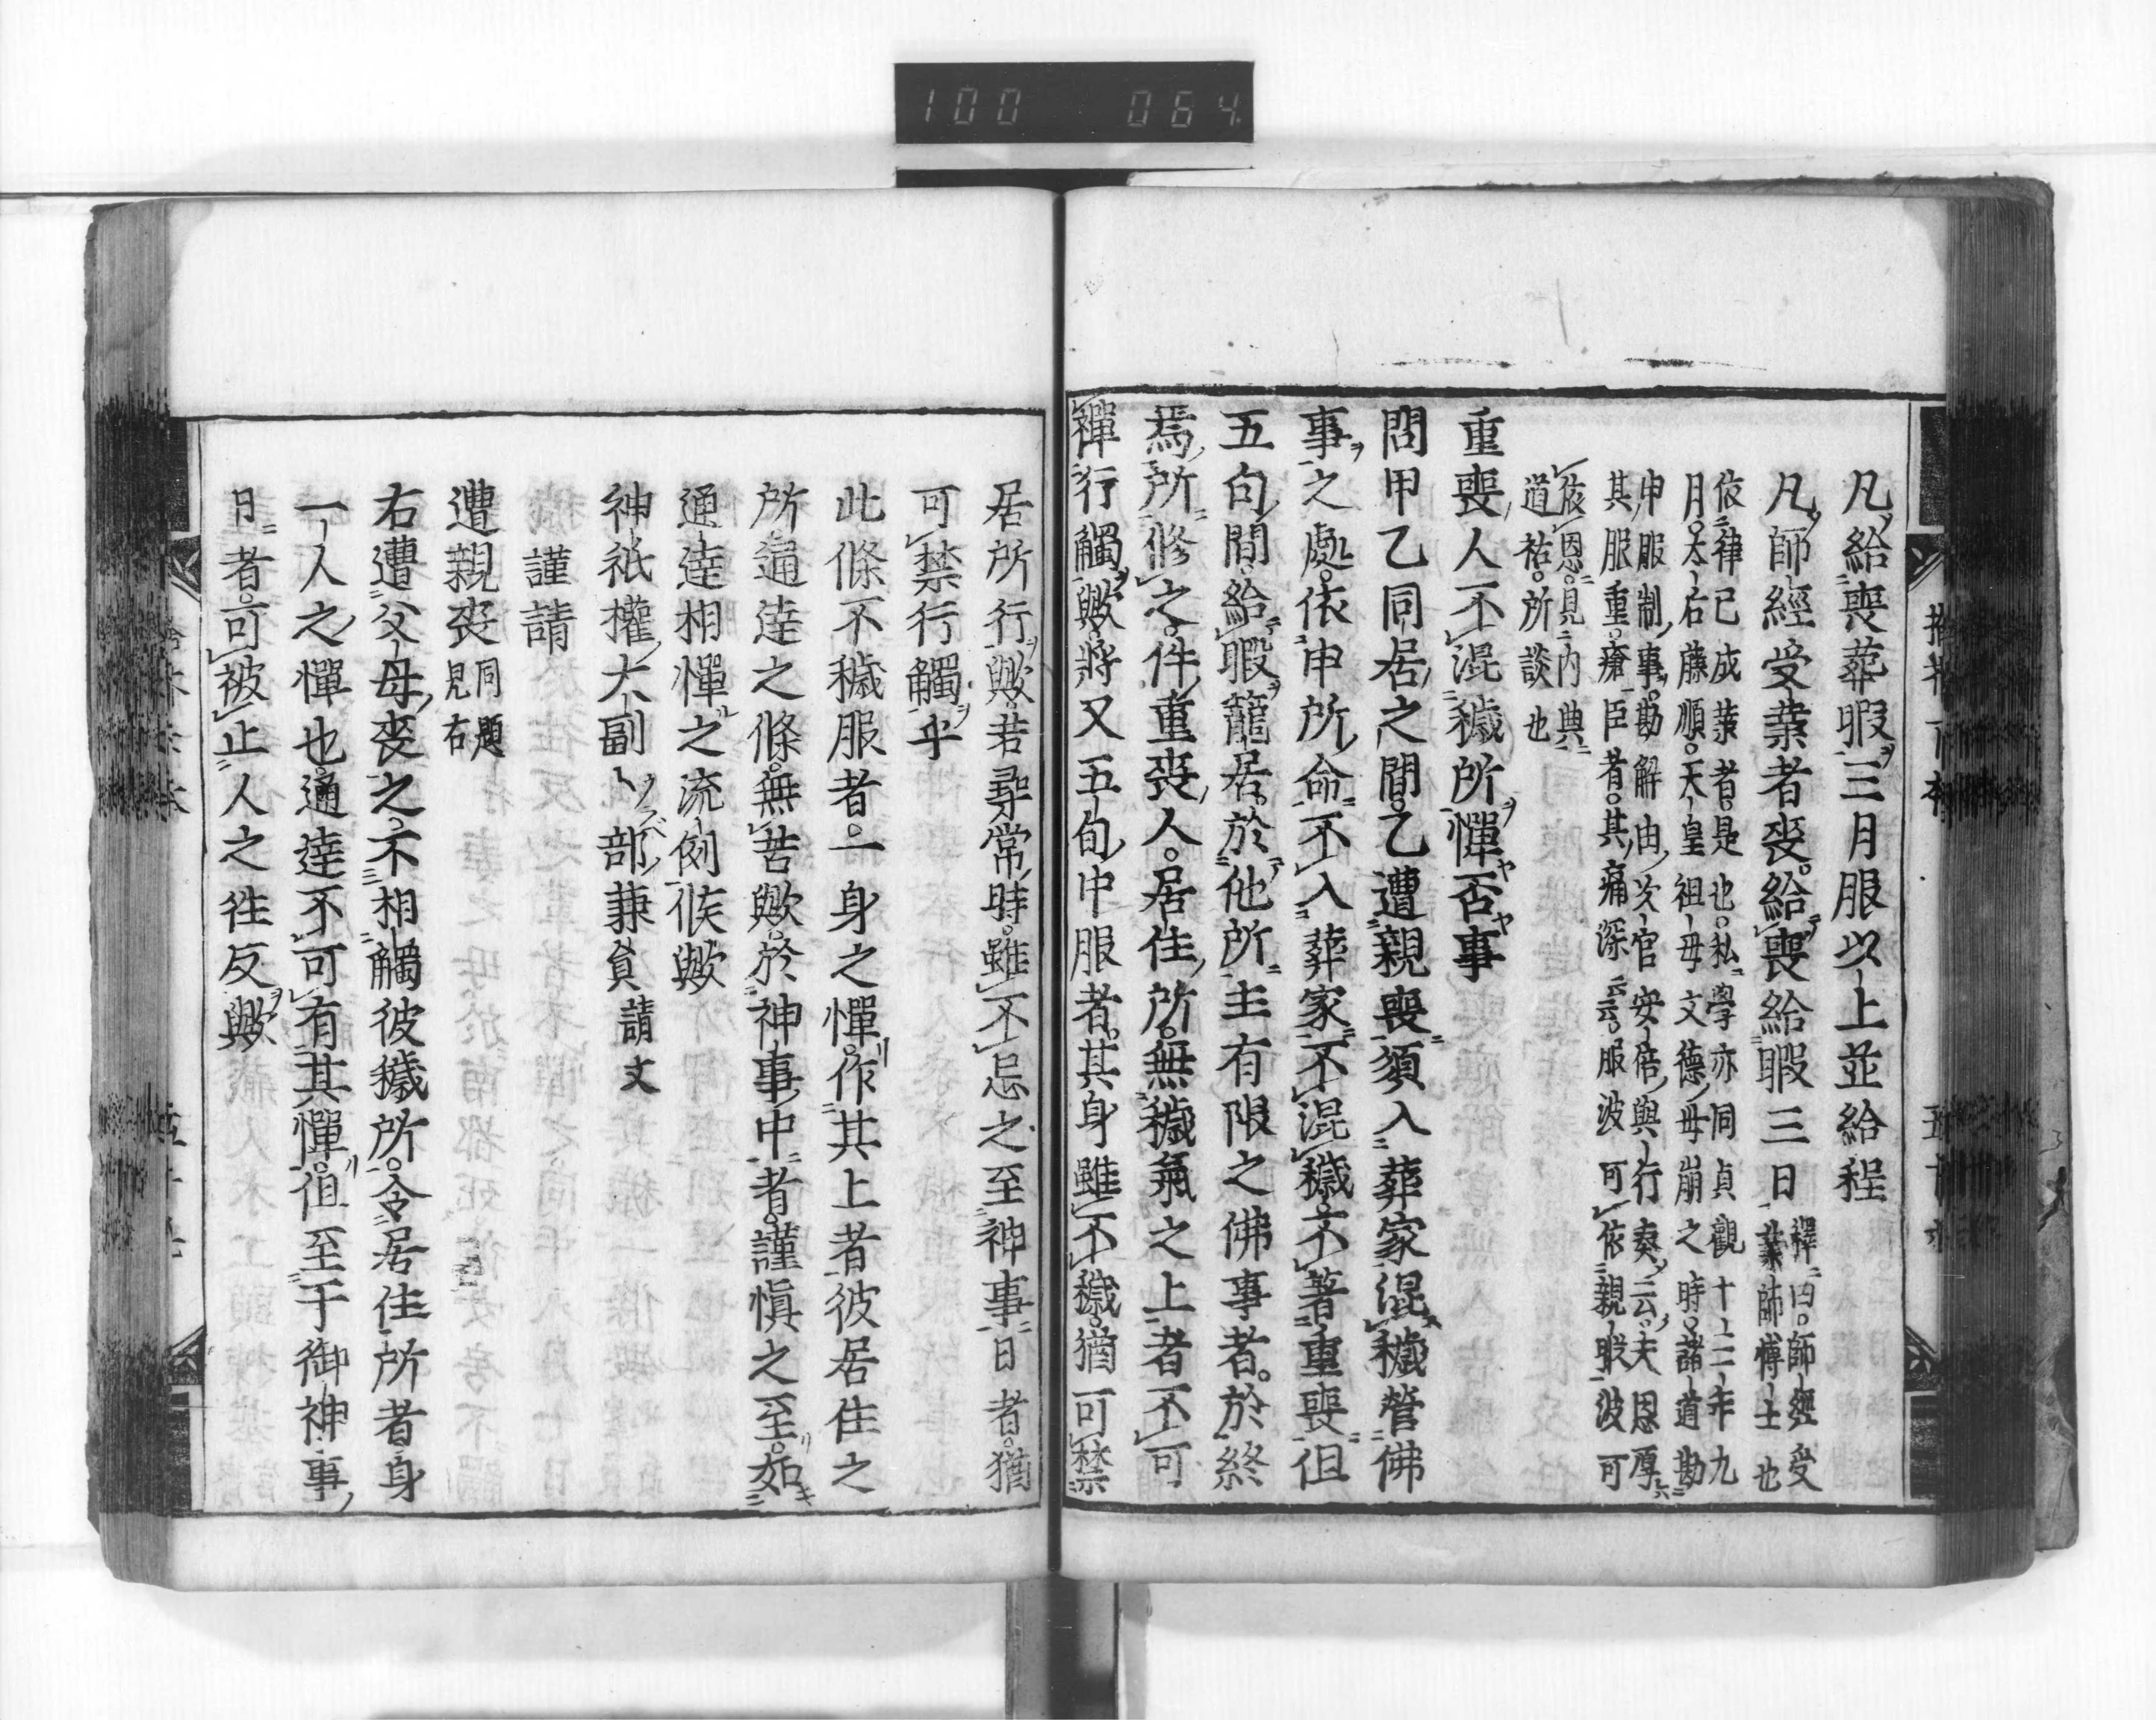 100 064
凡給喪葬暇三月服以上並給程
凡師經受業者喪給喪給暇三日
釋曰師經受
業師博士也
依律已成業者是也私學亦同貞觀十二年九
月太右藤順天皇祖母文德母崩之時諸道勘
申服制事勘解由次官安倍興行奏云夫恩厚
其服重瘡臣者其痛深云云服波可依親暇波可
依恩見内典
道祐所談也
重喪人不混穢所憚否事
問甲乙同居之間乙遭親喪須入葬家混穢營佛
事之處依申所命不入葬家不混穢不著重喪但
五旬間給暇籠居於他所主有限之佛事者於終
焉所修之件重喪人居住所無穢氣之上者不可
禅行觸歟將又五旬中服者其身雖不穢猶可禁
居所行歟若尋常時雖不忌之至神事日者猶
可禁行觸乎
此條不穢服者一身之憚作其上者彼居住之
所通達之條無苦歟於神事中者謹慎之至如
通達相憚之流例候歟
神祇權大副卜部兼員請文
謹請
遭親喪同題
見右
右遭父母喪之不相觸彼穢所令居住所者身
一人之憚也通達不可有其憚但至于御神事
日者可被止人之往反歟